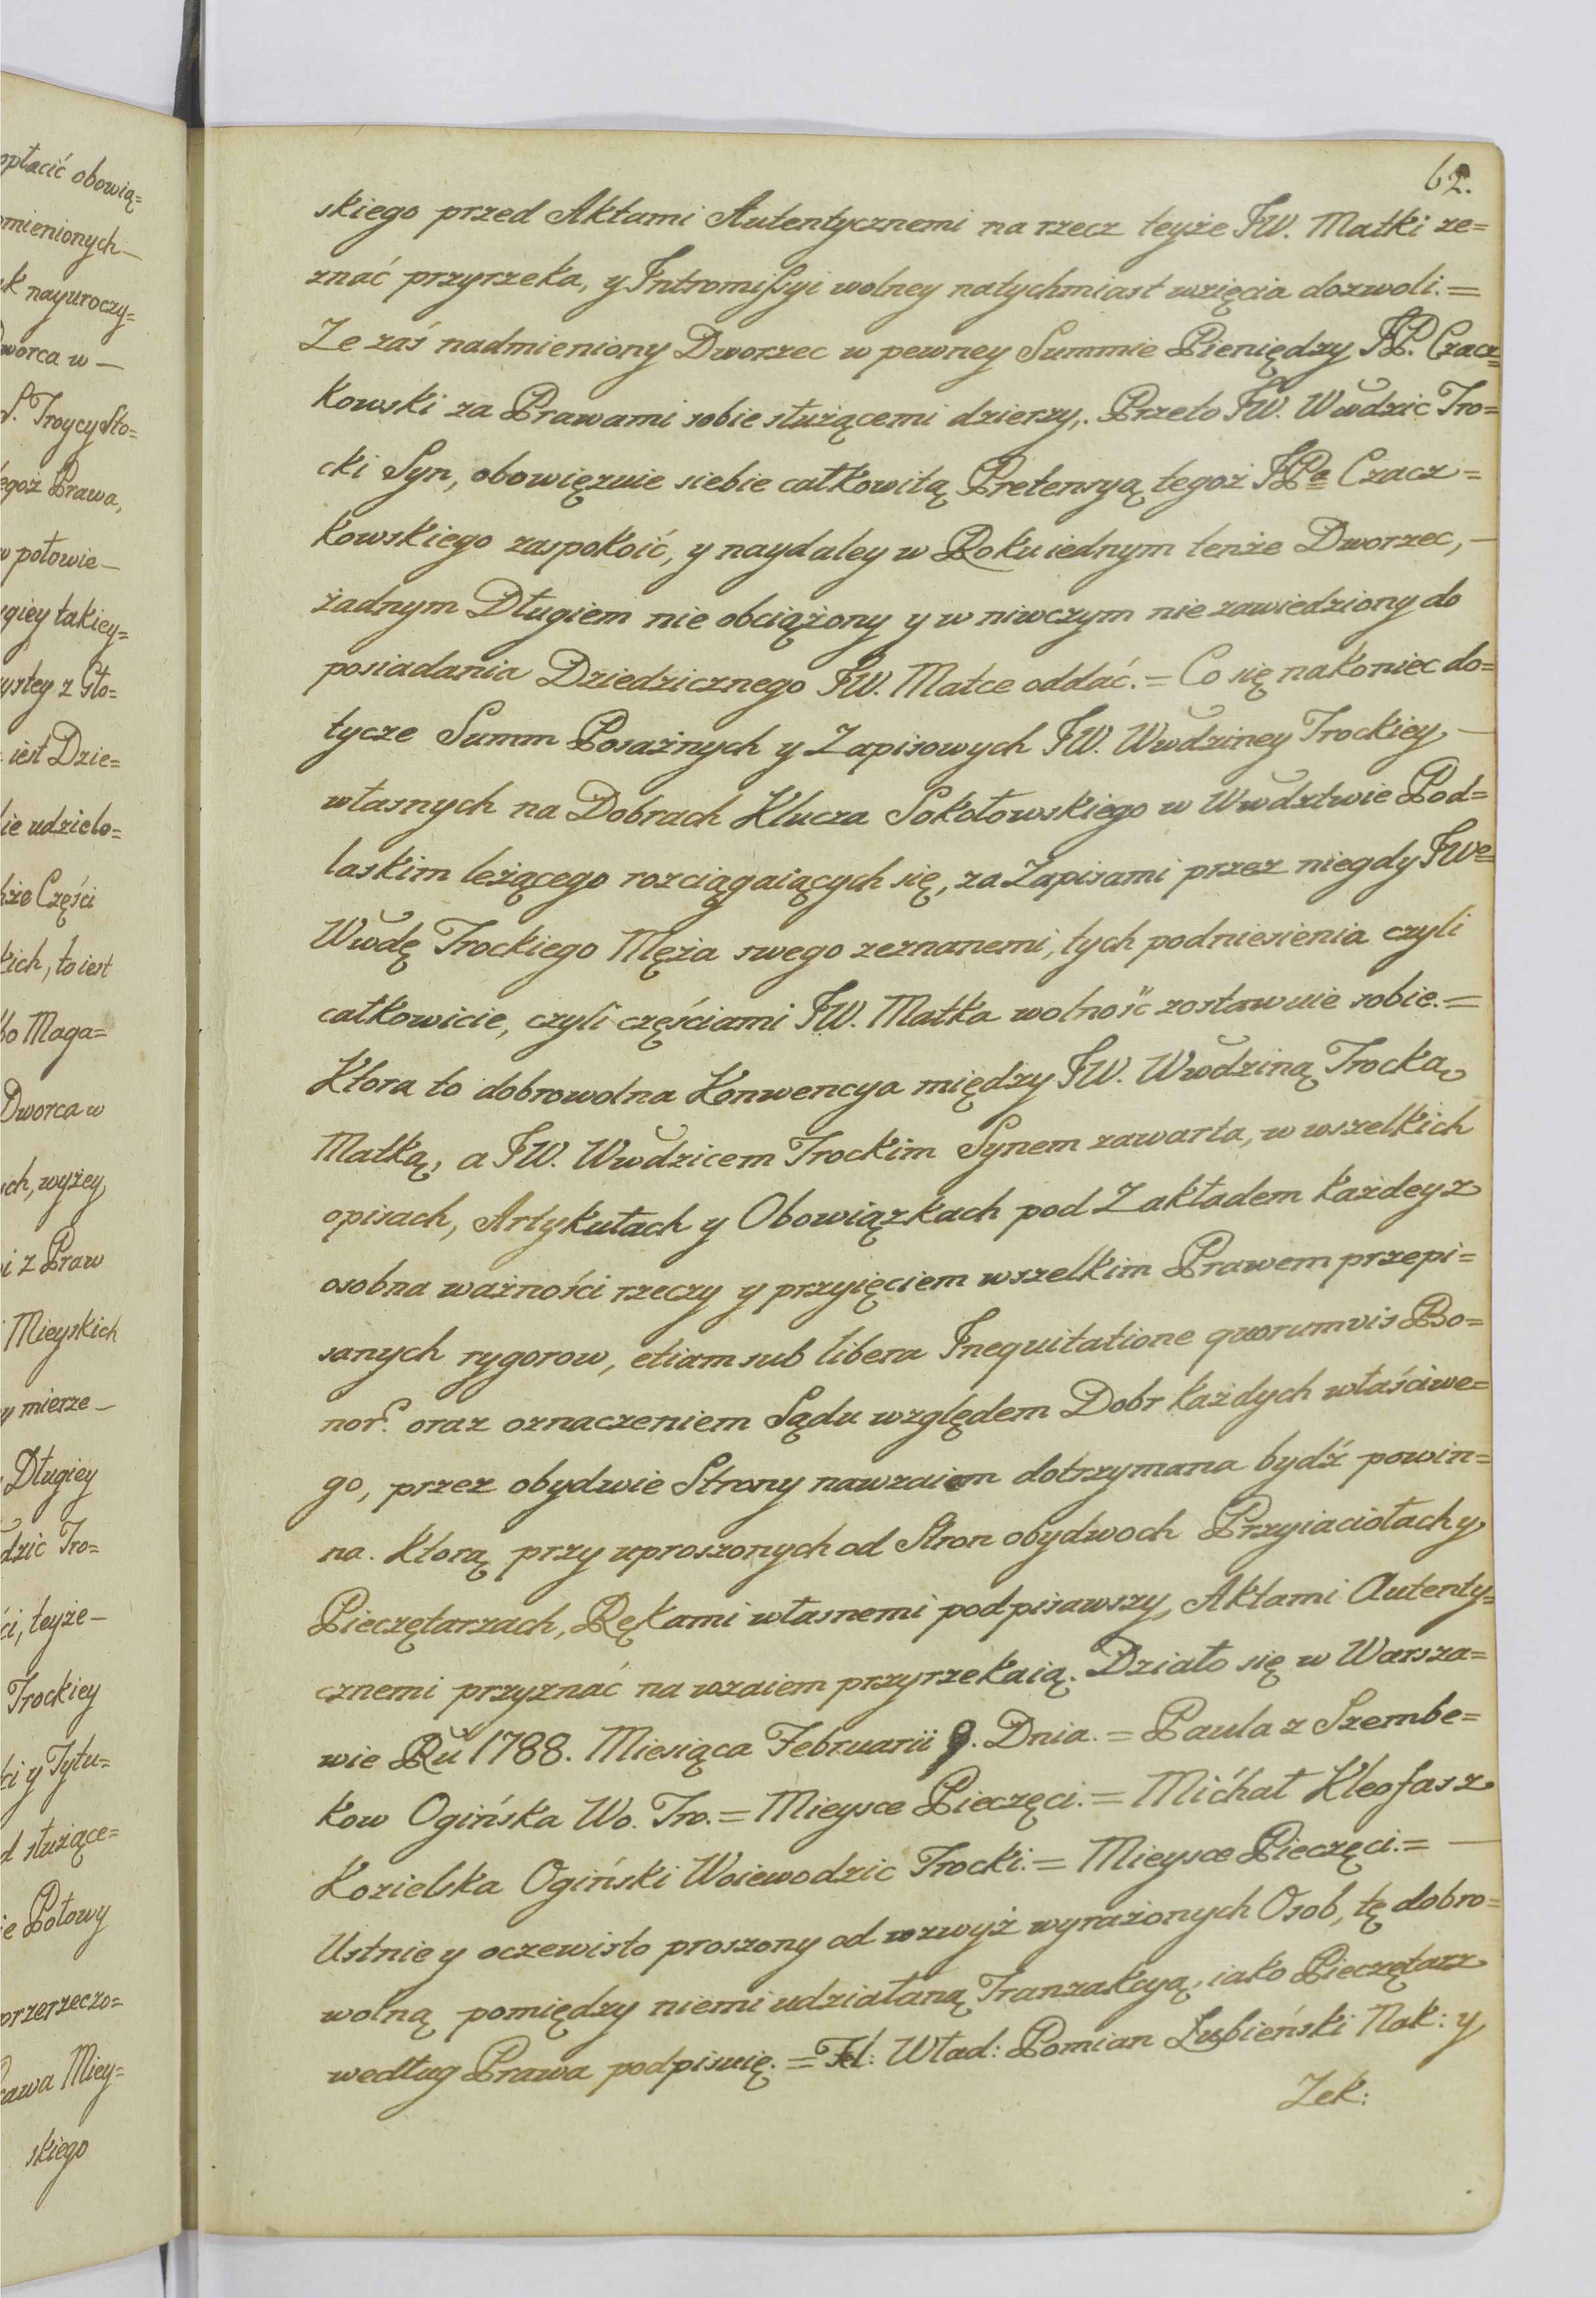 62.
skiego przed Aktami Autentycznemi na rzecz teyże JW. Matki ze=
znać przyrzeka, y Intromissyi wolney natychmiast wzięcia dozwoli.=
Ze zaś nadmieniony Dworzec w pewney Summie Pieniędzy JP. Czacz=
kowski za Prawami sobie służącemi dzierzy,. Przeto JW. Wwdzic Tro=
cki Syn, obowięzuie siebie całkowitą Pretensyą tegoż JPa Czacz=
kowskiego zaspokoić, y naydaley w Roku iednym tenże Dworzec,—
żadnym Długiem nie obciążony y w niwczym nie zawiedziony do
posiadania Dziedzicznego JW. Matce oddać.= Co się nakoniec do=
tycze Summ Posażnych y Zapisowych JW. Wwdziney Trockiey—
własnych na Dobrach Klucza Sokołowskiego w Wwdztwie Pod=
laskim leżącego rozciągaiących się, za Zapisami przez niegdy JWe
Wwdę Trockiego Męża swego zeznanemi, tych podniesienia czyli
całkowicie, czyli częściami JW. Matka wolność zostawuie sobie.=
Ktora to dobrowolna Konwencya między JW. Wwdziną Trocką
Matką, a JW. Wwdzicem Trockim Synem zawarta, w wszelkich
opisach, Artykułach y Obowiązkach pod Zakładem każdey z
osobna ważności rzeczy y przyięciem wszelkim Prawem przepi=
sanych rygorow, etiam sub libera Inequitatione quorumvis Bo=
nor? oraz oznaczeniem Sądu względem Dobr każdych właściwe=
go, przez obydwie Strony nawzaiem dotrzymana bydź powin=
na. Ktorą przy uproszonych od Stron obydwoch Przyiaciołach y
Pieczętarzach, Rękami własnemi podpisawszy, Aktami Autenty=
cznemi przyznać nawzaiem przyrzekaią. Działo się w Warsza=
wie Ru 1788. Miesiąca Februarii 9. Dnia.= Paula z Szembe=
kow Ogińska Wo. Tro.= Mieysce Pieczęci.= Michał Kleofas z
Kozielska Ogiński Woiewodzic Trocki.= Mieysce Pieczęci.=—
Ustnie y oczewisto proszony od wzwyż wyrażonych Osob, tę dobro=
wolną pomiędzy niemi udziałaną Tranzakcyą, iako Pieczętarz
według Prawa podpisuię.= Fel: Wład: Pomian Łubieński Nak: y
Zek:
opłacić obowią=
mienionych—
k nayuroczy=
worca w—
S. Troycy Sto=
egoż Prawa,
w połowie—
giey takiey=
ystey z Sto=
iest Dzie=
ie udzielo=
że Części
kich, to iest
bo Maga=
Dworca w
ch, wyżey
i z Praw
Mieyskich
y mierze—
Długiey
dzic Tro=
ci, teyże—
Trockiey
ci y Tytu=
d służące=
ie Połowy
przerzeczo=
rawa Miey=
skiego